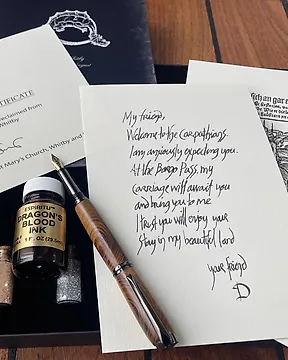 CERTIFICATE
reclaimed from
Whitby
St Mary's Church, Whitby and
ESPIRITU™
DRAGON'S
BLOOD
INK
1 FL. OZ (29.5m
My friend,
Welcome to the Carpathians.
I am anxiously expecting you.
At the Borgo Pass, my
carriage will await you
and bring you to me
I trust you will enjoy your
stay in my beautiful land
your friend
D